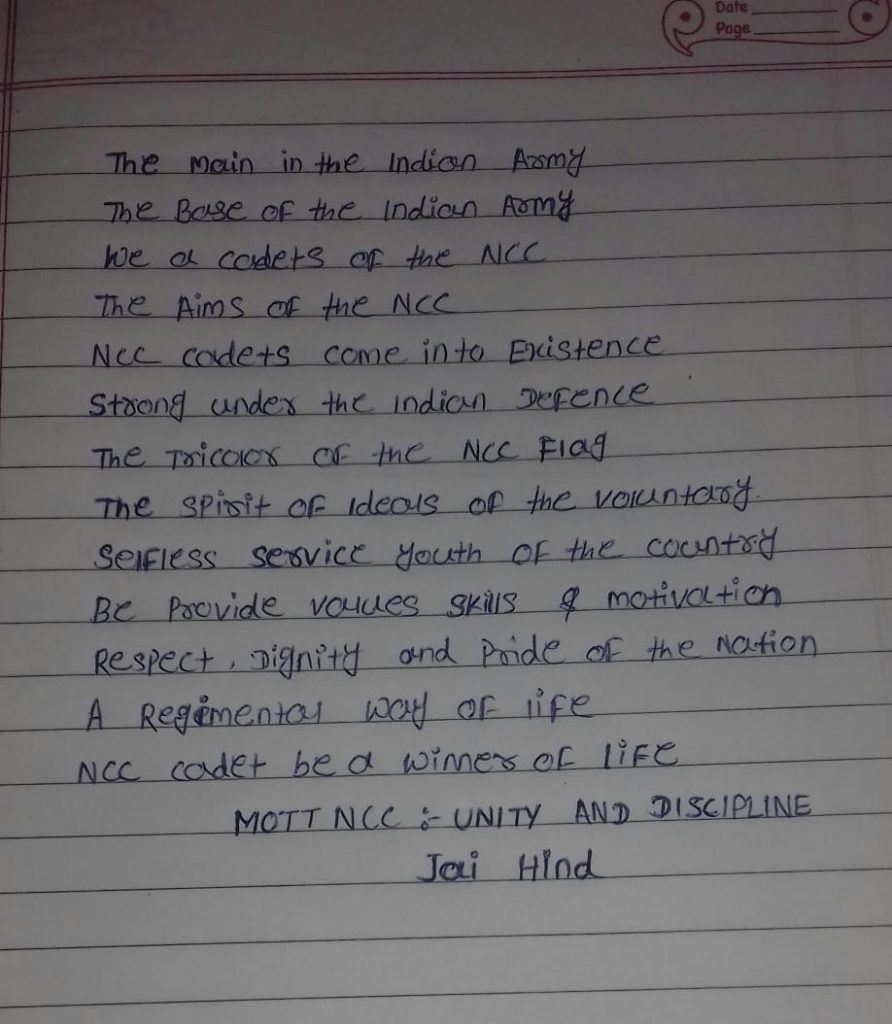 Date
Page
The main in the Indian Army
The Base of the Indian Army
We a cadets of the NCC
The Aims of the NCC
NCC cadets come into Existence
Strong under the indian Defence
The Tricolor of the NCC Flag
The spirit of Ideals of the voluntary.
Selfless service youth of the country
Be Provide values skills & motivation
Respect, Dignity and Pride of the Nation
A Regimental way of life
NCC cadet be a winner of life
MOTT NCC :- UNITY AND DISCIPLINE
Jai Hind